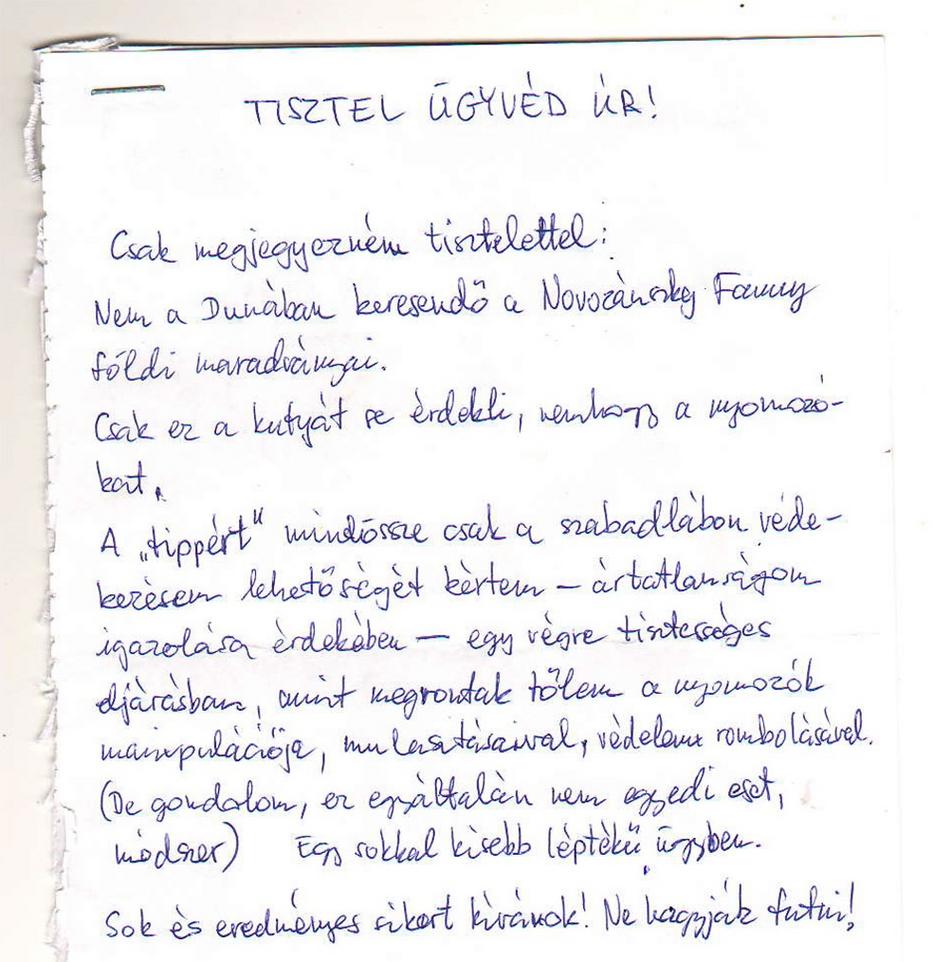 TISZTEL ÜGYVÉD ÚR!
Csak megjegyezném tisztelettel:
Nem a Dunában keresendő a Novozánszky Fanny
földi maradványai.
Csak ez a kutyát se érdekli, nemhogy a nyomozó-
kat.
A „tippért" mindössze csak a szabadlábon véde-
kezésem lehetőségét kértem – ártatlanságom
igazolása érdekében – egy végre tisztességes
eljárásban, amit megvontak tőlem a nyomozók
manipulációja, mulasztásaival, védelem rombolásával.
(De gondolom, ez egyáltalán nem egyedi eset,
módszer) Egy sokkal kisebb léptékű ügyben.
Sok és eredményes sikert kívánok! Ne hagyják futni!